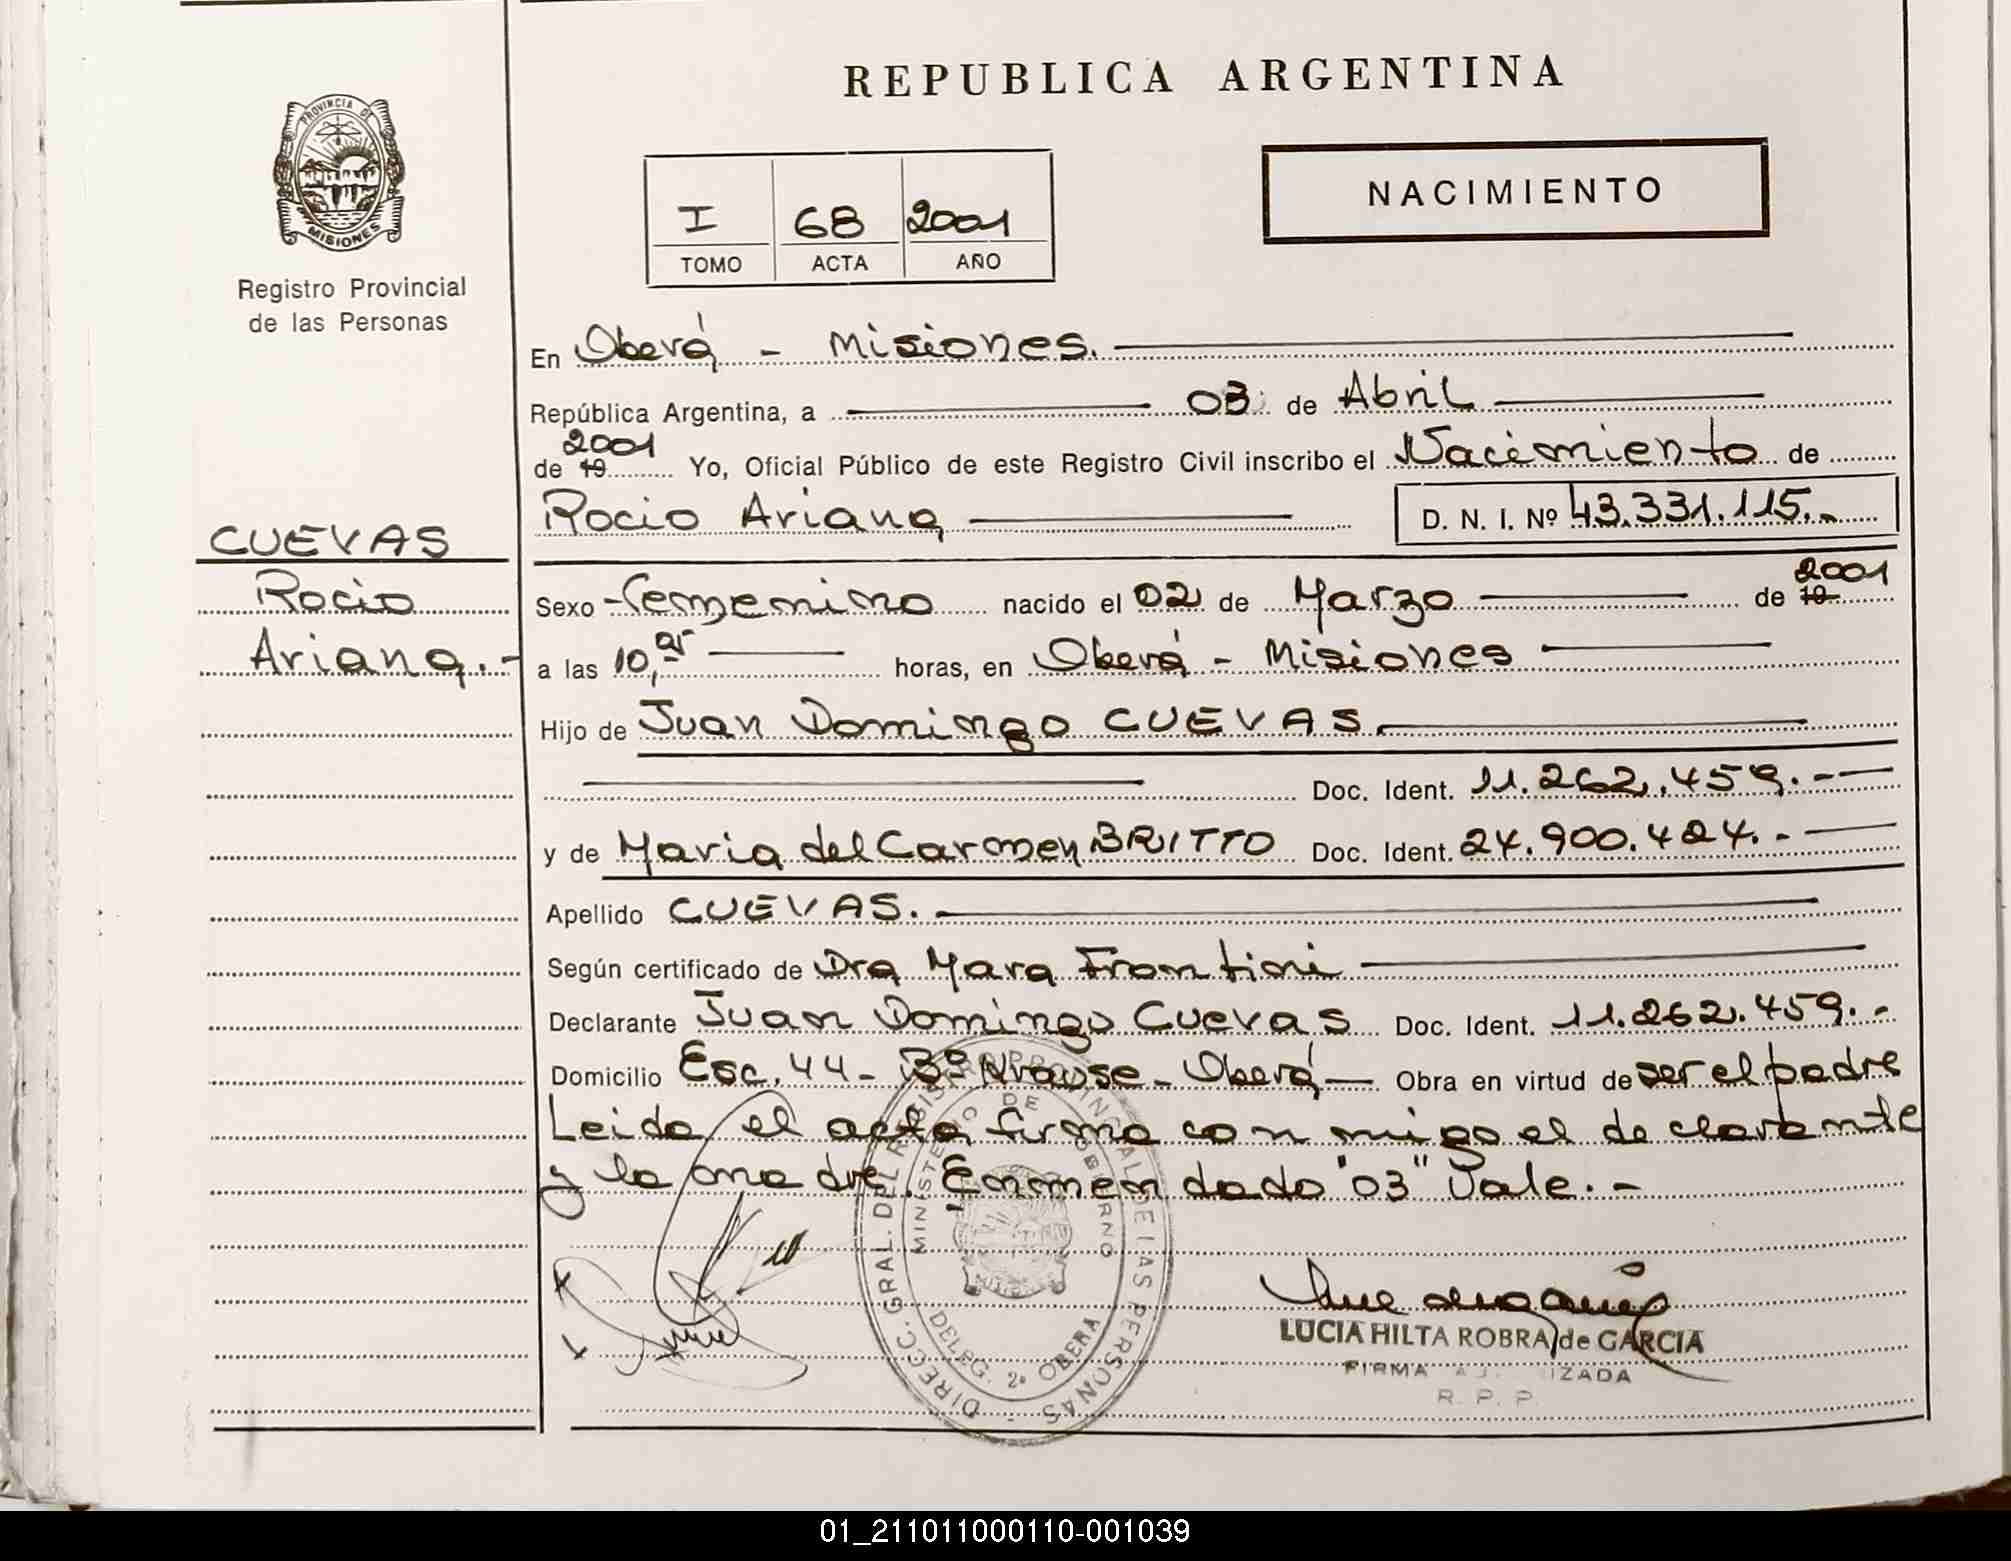 REPUBLICA ARGENTINA
PROVINCIA DE
MISIONES
Registro Provincial
de las Personas
I 68 2001
TOMO ACTA AÑO
NACIMIENTO
En Oberá - Misiones.
República Argentina, a 03 de Abril
2001
de 19 Yo, Oficial Público de este Registro Civil inscribo el Nacimiento de
Rocio Ariana D. N. I. Nº 43.331.115.-
CUEVAS
Rocio
Ariana.-
2001
Sexo Femenino nacido el 02 de Marzo de 19
a las 10, horas, en Oberá - Misiones
Hijo de Juan Domingo CUEVAS.
Doc. Ident. 11.262.459.-
y de Maria del Carmen BRITTO Doc. Ident. 24.900.424.-
Apellido CUEVAS.
Según certificado de Dra Mara Frontini
Declarante Juan Domingo Cuevas Doc. Ident. 11.262.459.-
Domicilio Esc. 44 - Bº Krause - Oberá Obra en virtud de ser el padre
Leida el acta firma con migo el declarante
y la madre. Enmendado "03" Vale.-
DIRECC. GRAL. DEL REGISTRO PROVINCIAL DE LAS PERSONAS
MINISTERIO DE GOBIERNO
DELEG. 2º OBERA
LUCIA HILTA ROBRA de GARCIA
FIRMA AUTORIZADA
R. P. P.
01_211011000110-001039